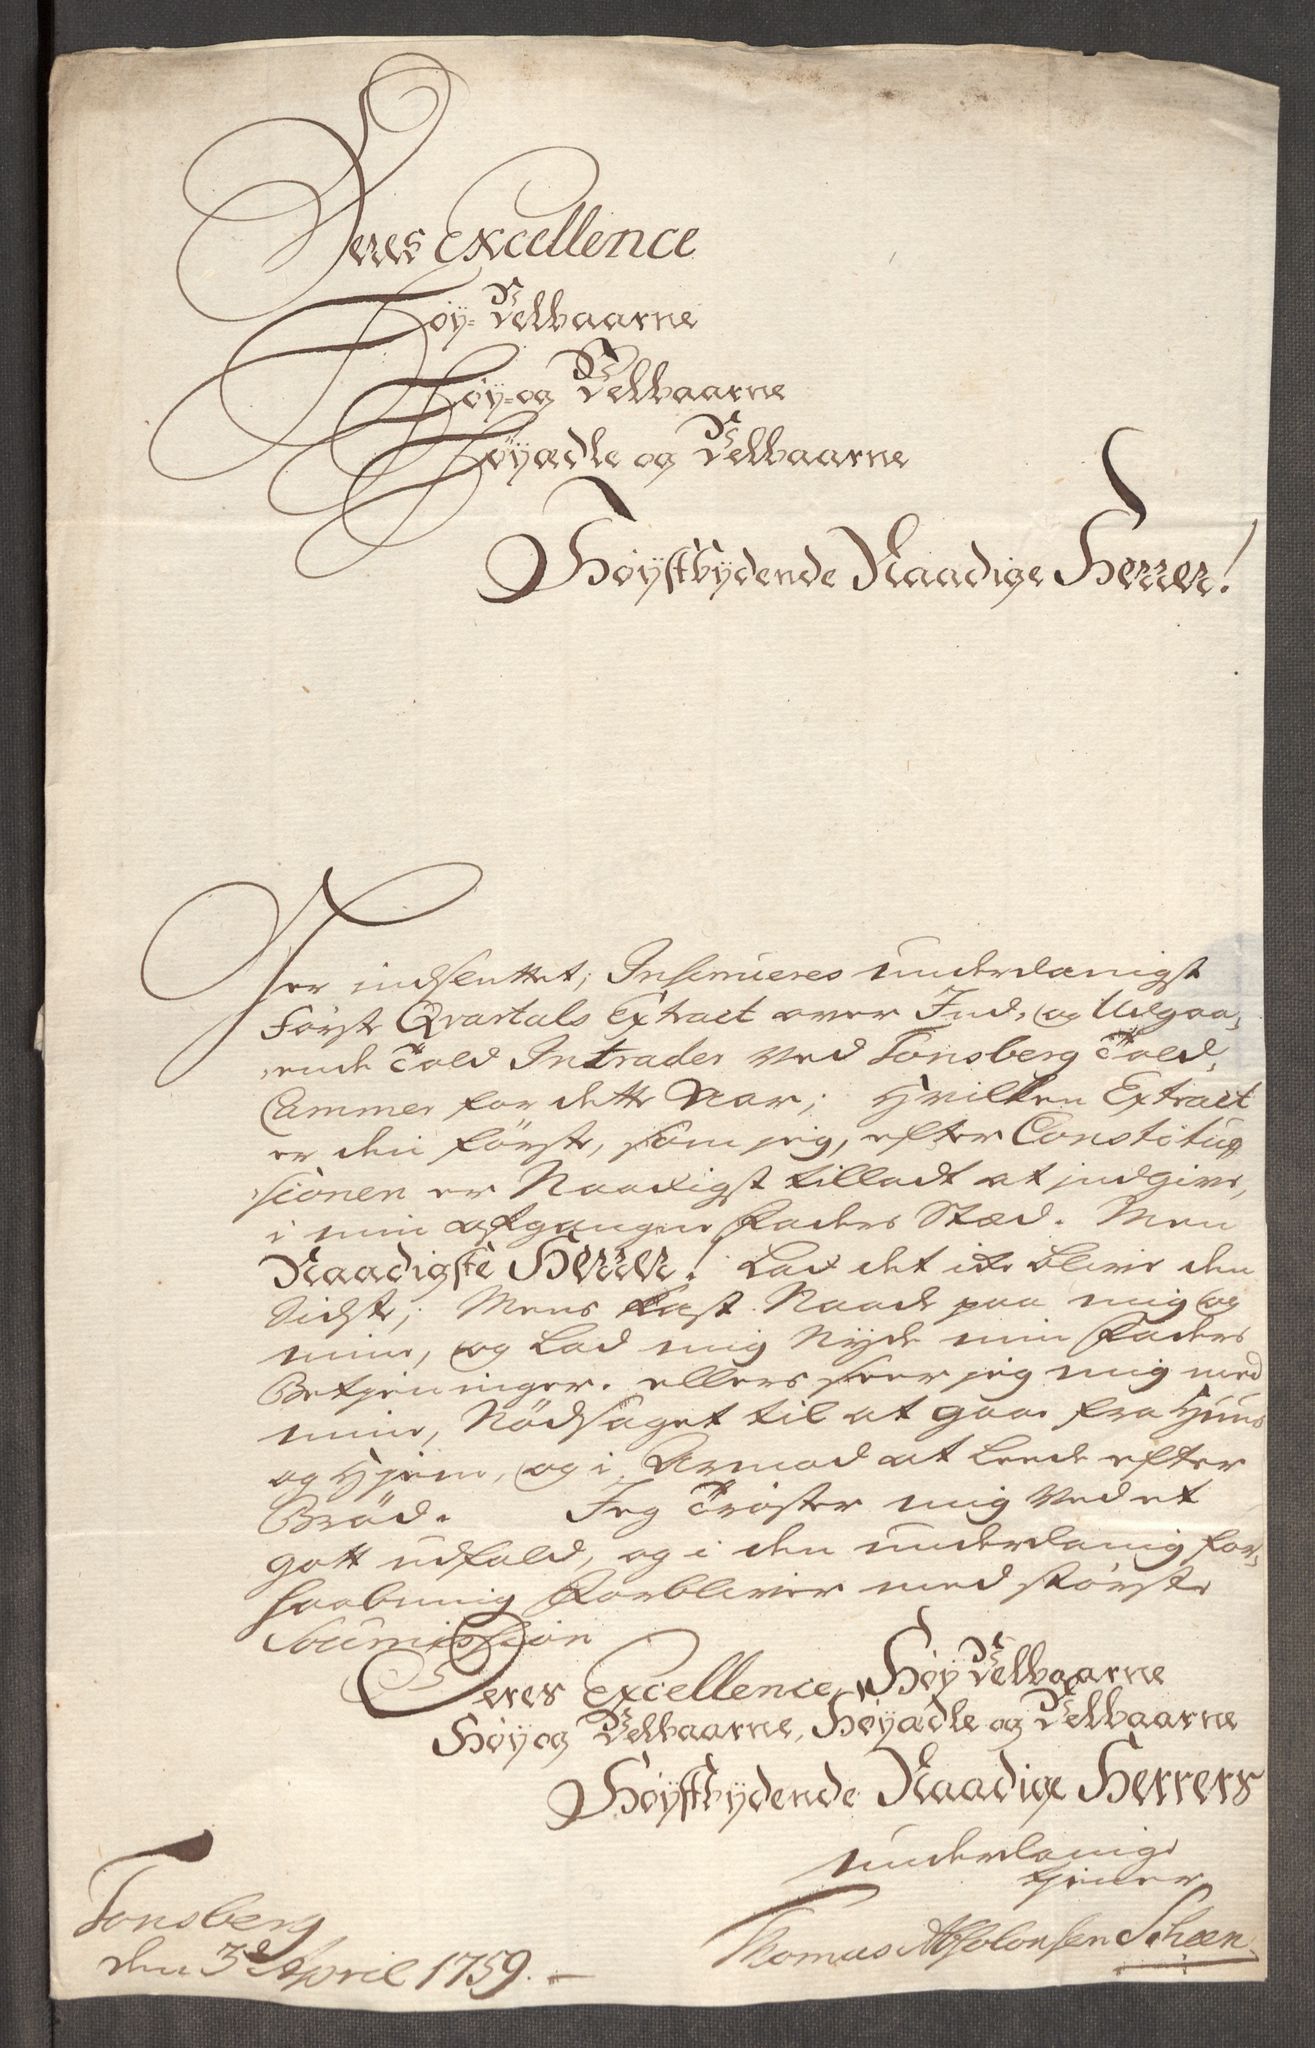 Deres Excellence
Høy-Velbaarne
Høy-og Velbaarne
Høyædle og Velbaarne
Høystbydende Naadige Herrer!
Her indsluttet, Insinueres underdanigst
første Qvartals Extract over Ind- og Udgaa-
ende Told Intrader ved Tonsberg Told-
Cammer for dette Aar; Hvilken Extract
er den første, som jeg, efter Constitu-
sionen er Naadigst tilladt at indgive,
i min afgangne Faders Stæd. Men
Naadigste Herrer! Lad det ike blive den
Sidste; Mens kast Naade paa mig og
mine, og Lad mig Nyde min Faders
Betieninger. ellers seer jeg mig med
mine, Nødsaget til at gaae fra Huus
og Hjem, og i Armod at Leede efter
Brød. Jeg Trøster mig ved et
gott udfald, og i den underdanig for-
haabning forbliver med største
Soumission
Deres Excellence, Høy Velbaarne
Høy og Velbaarne, Høyædle og Velbaarne
Høystbydende Naadige Herrers
underdanige
tiener
Thomas Absolonsen Scheen
Tonsberg
den 3d April 1759.